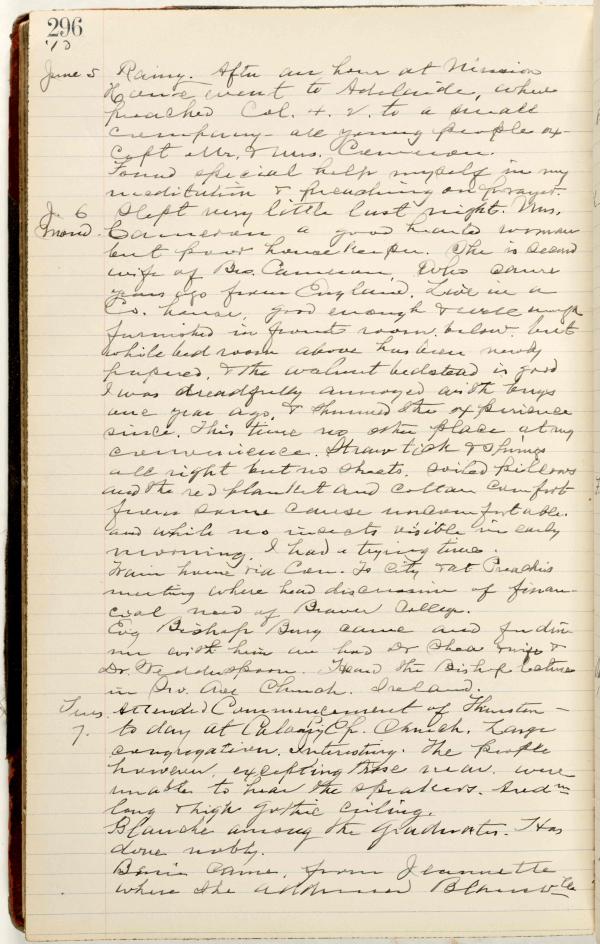 296
'10
June 5 Rainy. After an hour at Mission
House, went to Adelaide, where
preached Col. 4. 2. to a small
company - all young people ex-
cept Mr. & Mrs. Cameron.
Found special help myself in my
meditation & preaching on prayer.
J. 6 Slept very little last night. Mrs.
Mond. Cameron a good hearted woman
but poor house keeper. She is second
wife of Bro. Cameron, who came
years ago from England. Live in a
Co. house, good enough & well enough
furnished in front room below. but
while bed room above has been newly
papered, & the walnut bedstead is good
I was dreadfully annoyed with bugs
one year ago, & shunned the experience
since. This time no other place at my
convenience. Straw tick & springs
all right but no sheets. soiled pillows
and the red blanket and cotton comfort
from same cause uncomfortable.
and while no insects visible in early
morning. I had a trying time.
Train home via Con. To city & at Preachers
meeting where had discussion of finan-
cial need of Beaver College.
Evg Bishop Berry came and for din
ner with him we had Dr Shea & wife &
Dr. Wedderspoon. Heard the Bishop lecture
in No. Ave Church. Ireland.
Tues. Attended Commencement of Thurston -
7. to day at Calvary Ep. Church. Large
congregation. Interesting. The people
however, excepting those near, were
unable to hear the speakers.
long & high gothic ceiling.
Blanche among the graduates. Has
done nobly.
came, from Jeannette
where she addressed